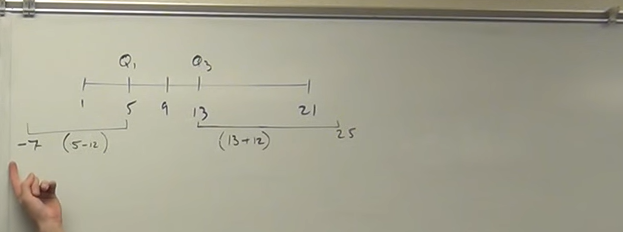 Q1 Q3
1 5 9 13 21
-7 (5-12) (13+12) 25